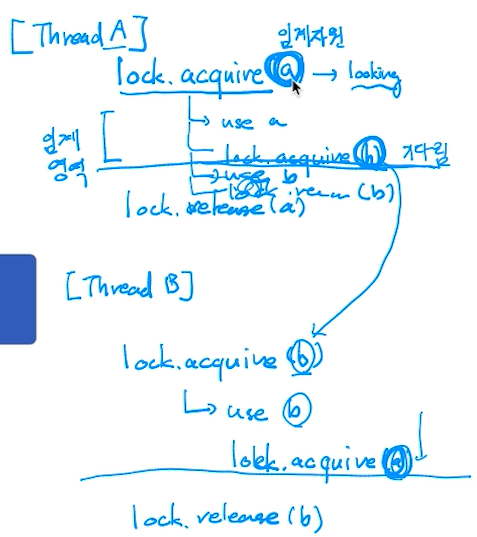 [Thread A]
임계자원
lock.acquire (a) → looking
→ use a
임계
영역
lock.acquire (b) 기다림
→ use b
(b)
lock.release (a)
[Thread B]
lock.acquire (b)
→ use b
lock.acquire (a)
lock.release (b)